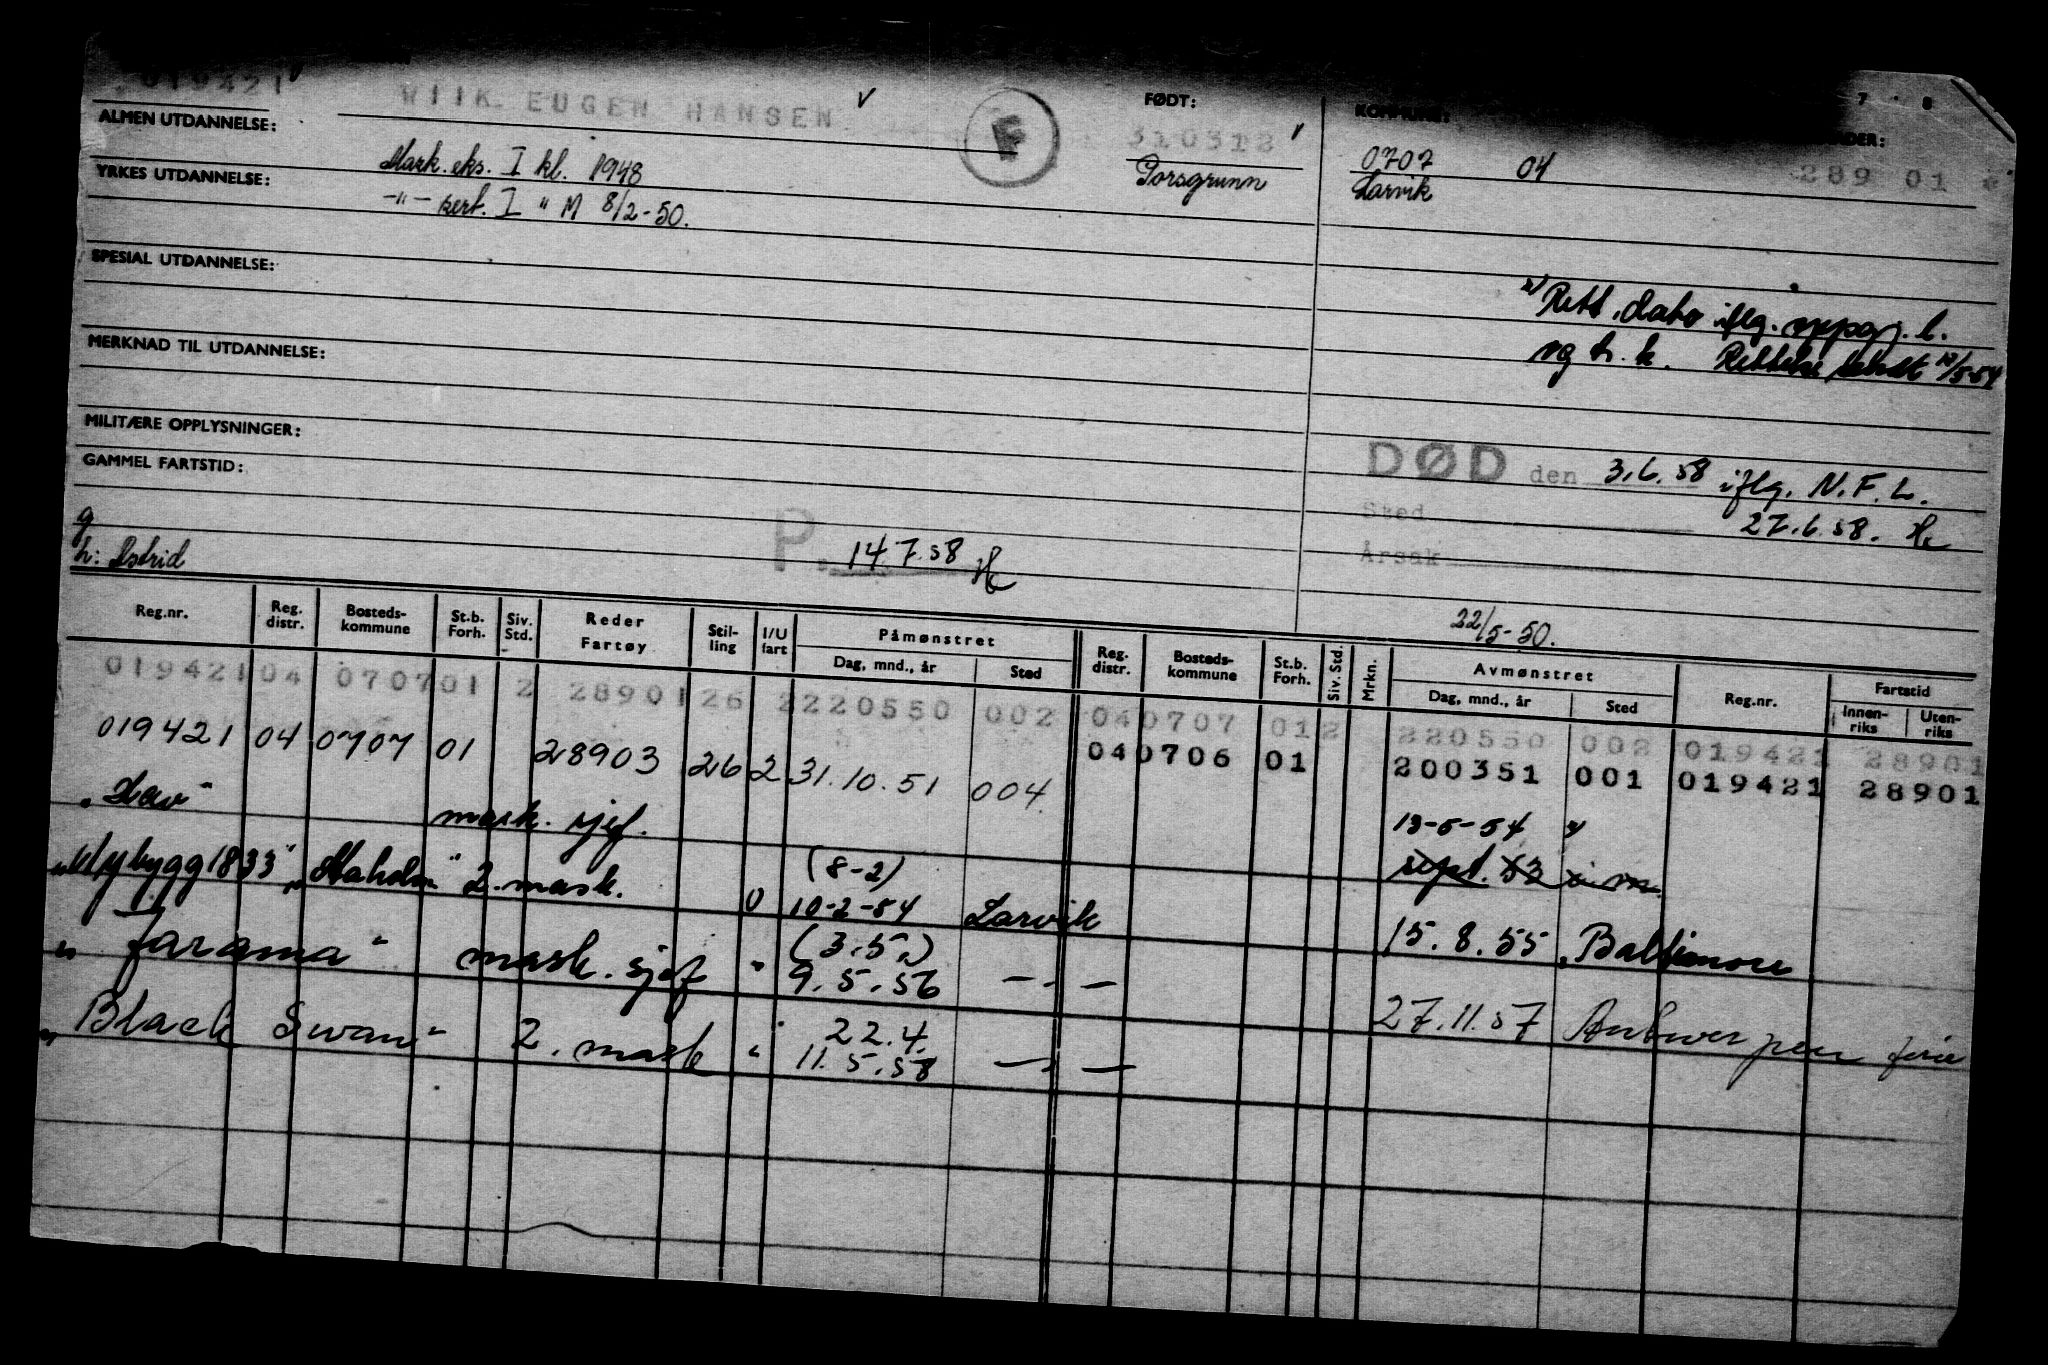 019421 v
WIIK EUGEN HANSEN v
F
FØDT:
310312 v
Porsgrunn
KOMMUNE:
7 8
0707 04
Larvik
289 01
ALMEN UTDANNELSE:
YRKES UTDANNELSE:
Mask. eks. I kl. 1948
-"- sert. I " M 8/2-50.
SPESIAL UTDANNELSE:
x) Rett. dato iflg. oppg. l.
og h. k. Rettelse sendt /5-54
MERKNAD TIL UTDANNELSE:
MILITÆRE OPPLYSNINGER:
GAMMEL FARTSTID:
DØD den 3.6.58 iflg. N.F.L.
Sted 27.6.58.
Årsak
g
h: Astrid
P. 14.7.58
22/5-50.
Reg.nr. Reg. distr. Bosteds- kommune St.b. Forh. Siv. Std. Reder Fartøy Stil- ling I/U fart Påmønstret Dag, mnd., år Sted Reg. distr. Bosteds- kommune St.b. Forh. Siv. Std. Mrkn. Avmønstret Dag, mnd., år Sted Reg.nr. Fartstid Innen- riks Uten- riks
019421 04 0707 01 2 28901 26 2 220550 002 04 0707 01 2 220550 002 019421 28901
019421 04 0707 01 28903 26 2 31.10.51 004 04 0706 01 200351 001 019421 28901
mask. sjef. 13-5-54 x)
sept. 53 i. m.
"Nybygg 1833" 2. mask. U (8-2) 10-2-54 Larvik 15.8.55 Baltimore
"Jarama" mask. sjef " (3.5.) 9.5.56 — " — 27.11.57 Antwerpen ferie
"Black Swan" 2. mask " 22.4. 11.5.58 — " —